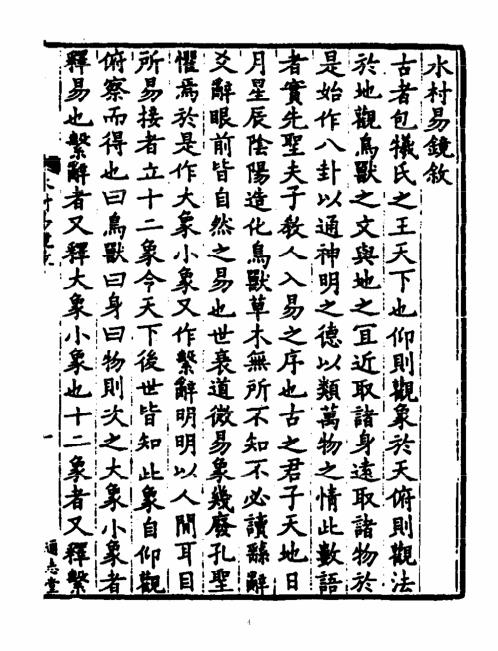 水村易鏡敘
古者包犧氏之王天下也仰則觀象於天俯則觀法
於地觀鳥獸之文與地之宜近取諸身遠取諸物於
是始作八卦以通神明之德以類萬物之情此數語
者實先聖夫子教人入易之序也古之君子天地日
月星辰陰陽造化鳥獸草木無所不知不必讀繇辭
爻辭眼前皆自然之易也世衰道微易象幾廢孔聖
懼焉於是作大象小象又作繫辭明明以人間耳目
所易接者立十二象令天下後世皆知此象自仰觀
俯察而得也曰鳥獸曰身曰物則次之大象小象者
釋易也繫辭者又釋大象小象也十二象者又釋繫
一
通志堂